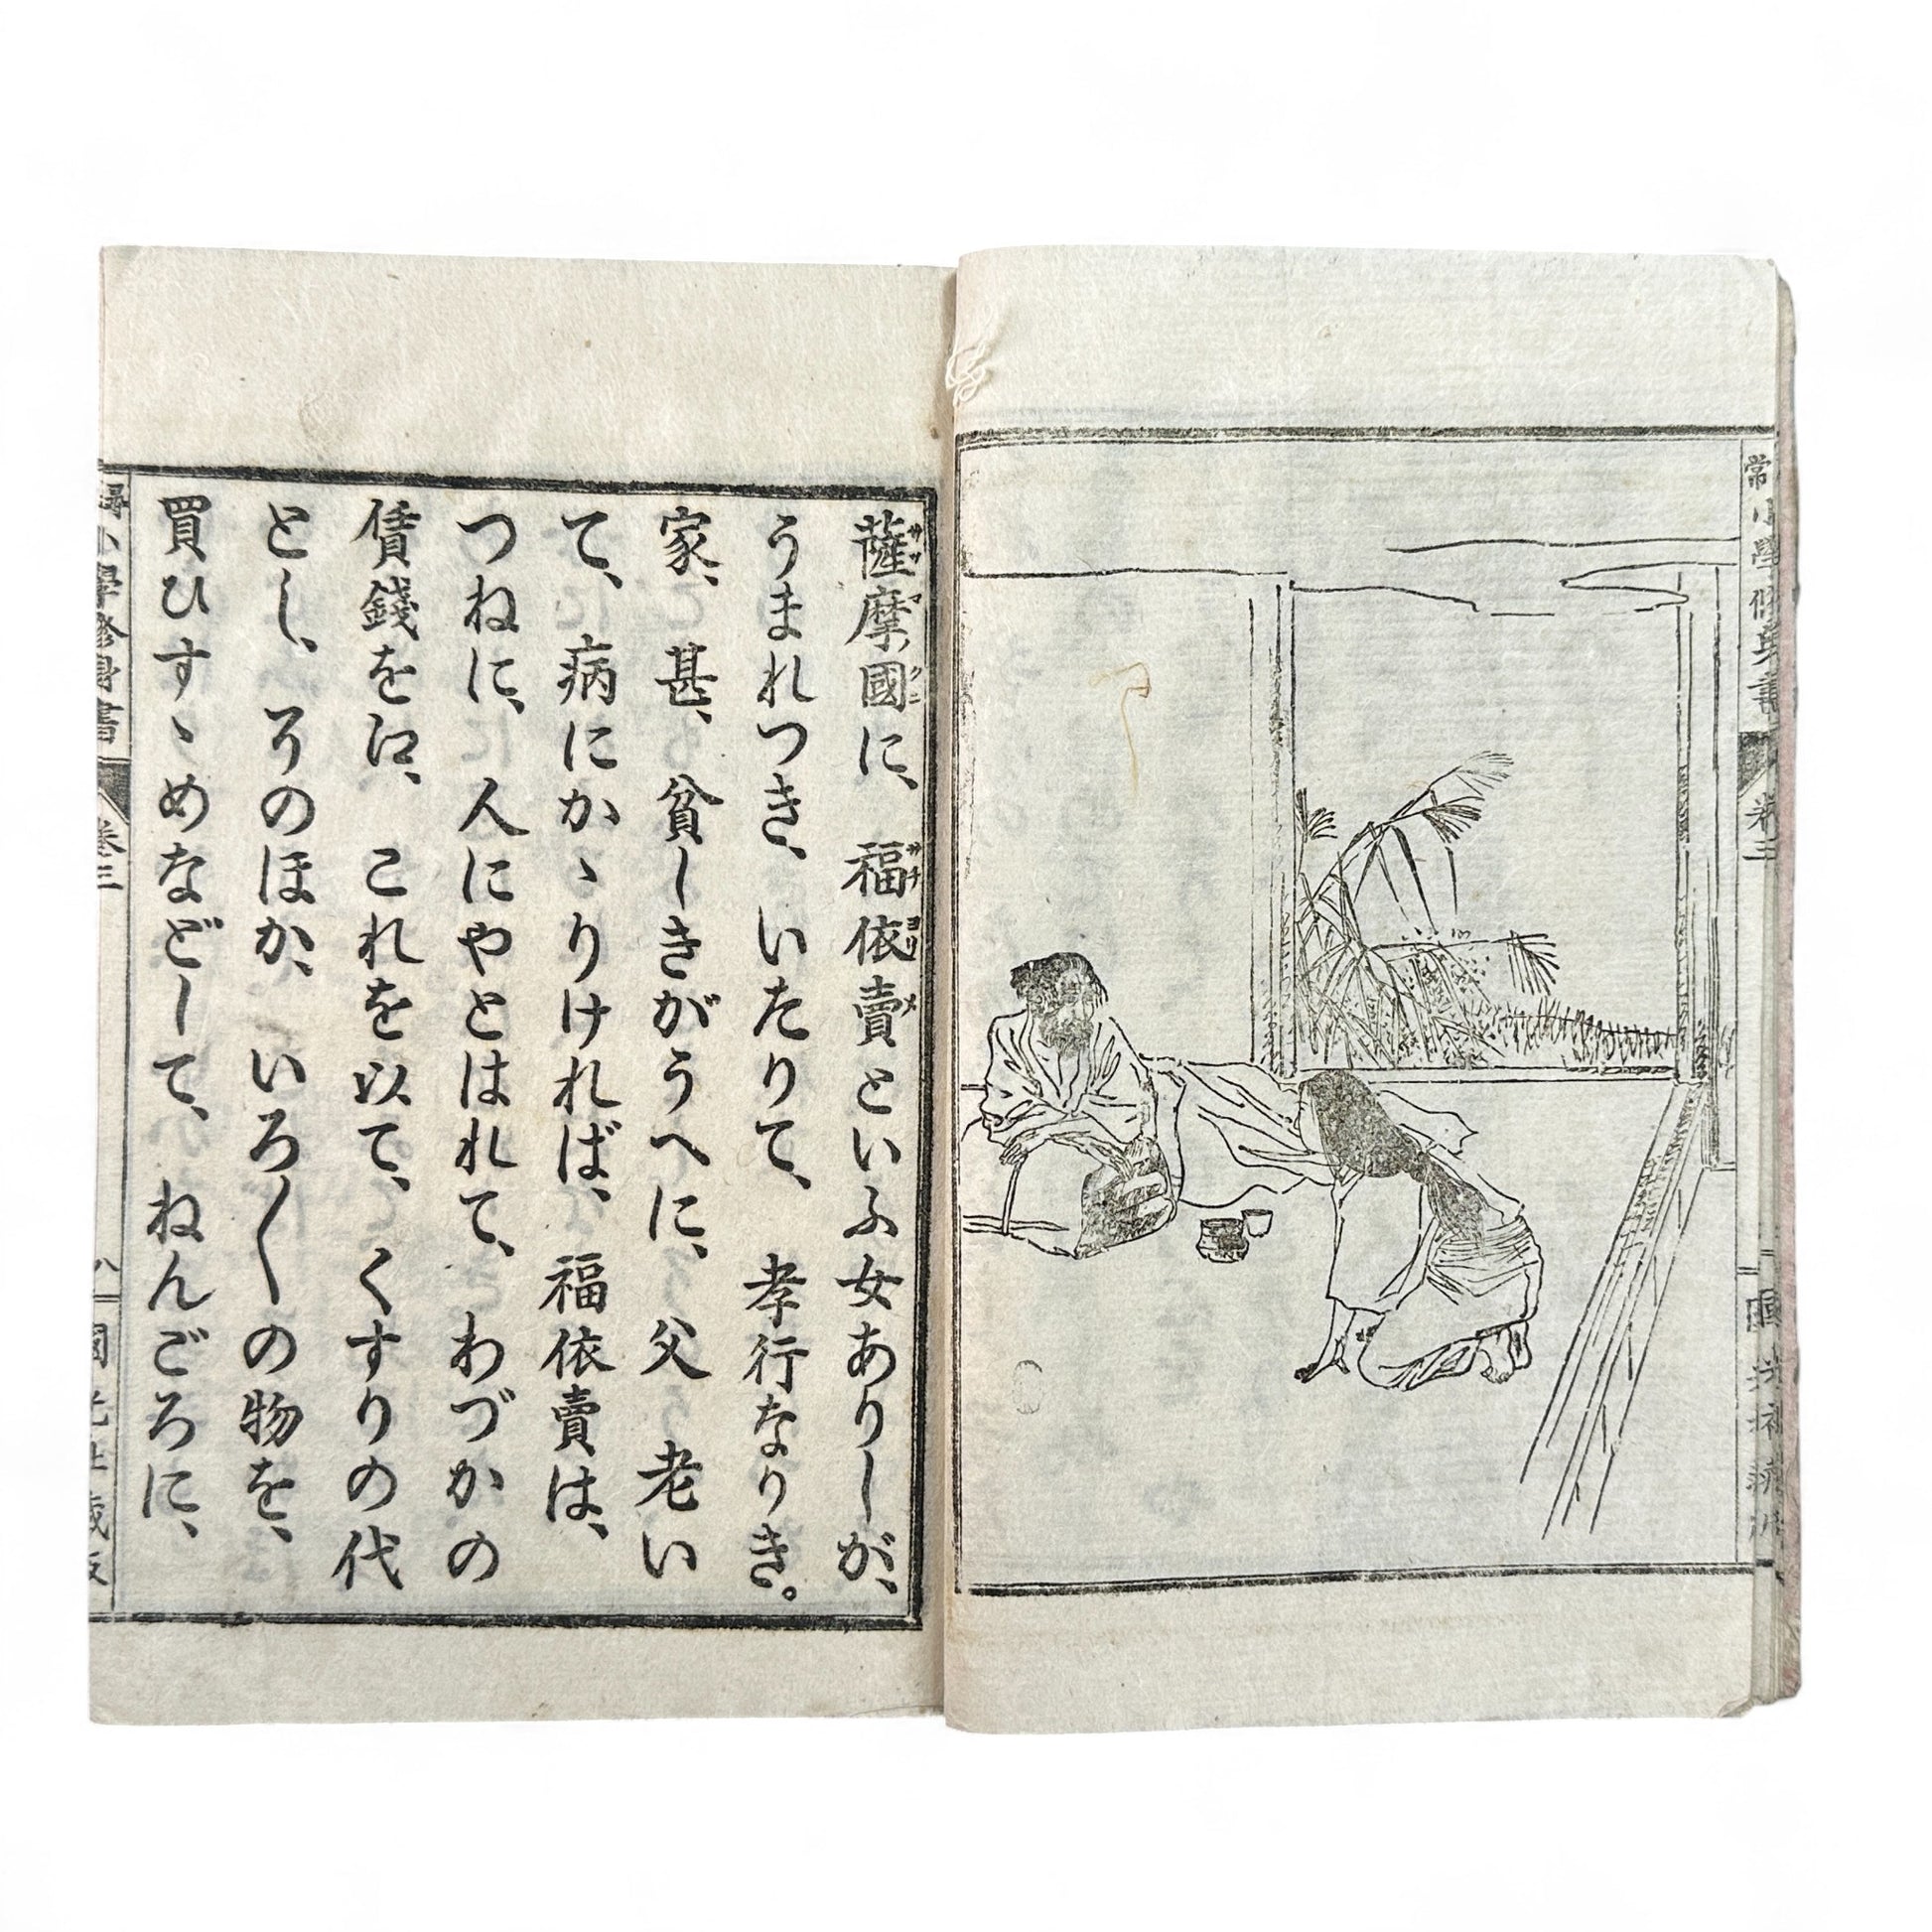 常小學修身書 卷三 國光社藏版
薩摩國に、福依賣といふ女ありしが、
サツマ クニ サチヨリメ
うまれつき、いたりて、孝行なりき。
家、甚、貧しきがうへに、父老い
て、病にかゝりければ、福依賣は、
つねに、人にやとはれて、わづかの
賃錢をえ、これを以て、くすりの代
とし、そのほか、いろ〱の物を、
買ひすゝめなどして、ねんごろに、
小學修身書 卷三 八 國光社藏版